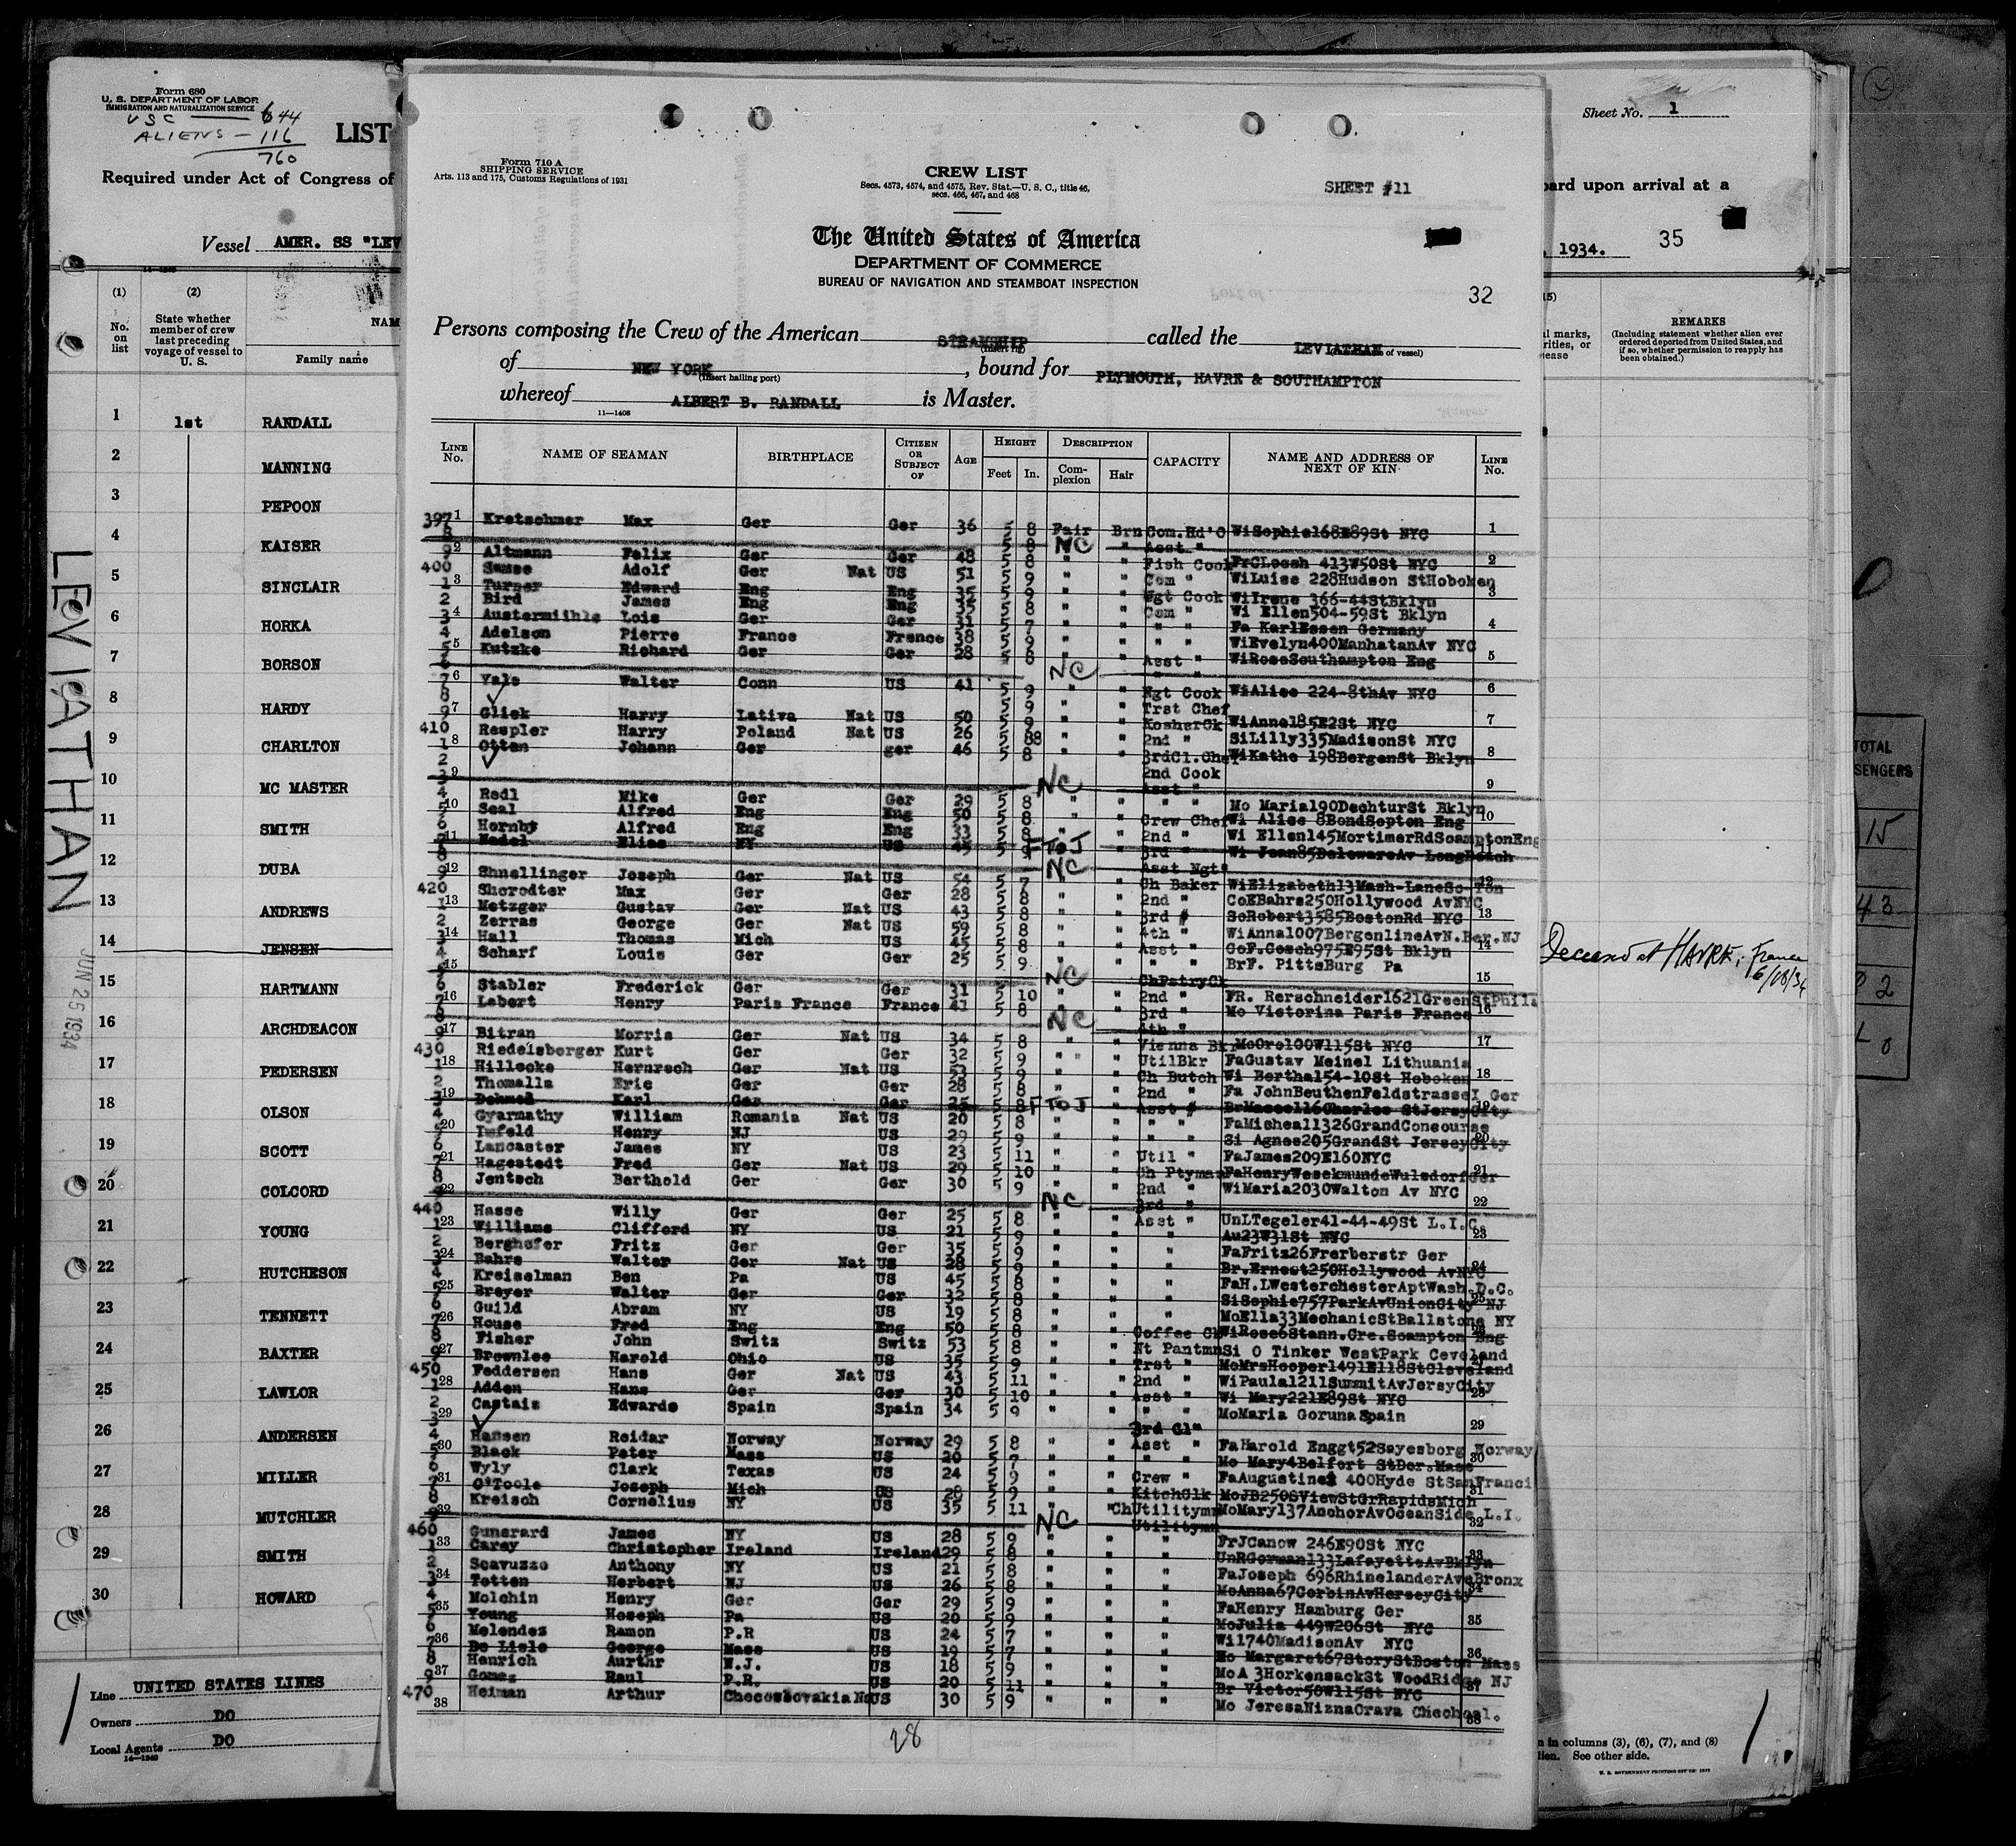 Form 680
U. S. DEPARTMENT OF LABOR
IMMIGRATION AND NATURALIZATION SERVICE
USC — 644
ALIENS — 116
760
LIST
Required under Act of Congress of
Vessel AMER. SS "LEV
(1) (2)
No. on list
State whether member of crew last preceding voyage of vessel to U. S.
NAM
Family name
1 1st RANDALL
2 MANNING
3 PEPOON
4 KAISER
5 SINCLAIR
6 HORKA
7 BORSON
8 HARDY
9 CHARLTON
10 MC MASTER
11 SMITH
12 DUBA
13 ANDREWS
14 JENSEN
15 HARTMANN
16 ARCHDEACON
17 PEDERSEN
18 OLSON
19 SCOTT
20 COLCORD
21 YOUNG
22 HUTCHESON
23 TENNETT
24 BAXTER
25 LAWLOR
26 ANDERSEN
27 MILLER
28 MUTCHLER
29 SMITH
30 HOWARD
LEVIATHAN
JUN 25 1934
Line UNITED STATES LINES
Owners DO
Local Agents DO
14—1240
Form 710 A
SHIPPING SERVICE
Arts. 113 and 175, Customs Regulations of 1931
CREW LIST
Secs. 4573, 4574, and 4575, Rev. Stat.—U. S. C., title 46,
secs. 466, 467, and 468
SHEET #11
The United States of America
DEPARTMENT OF COMMERCE
BUREAU OF NAVIGATION AND STEAMBOAT INSPECTION
32
Persons composing the Crew of the American STEAMSHIP called the LEVIATHAN
(Insert rig) of vessel)
of NEW YORK, bound for PLYMOUTH, HAVRE & SOUTHAMPTON
(Insert hailing port)
whereof ALBERT B. RANDALL is Master.
11—1408
LINE No. NAME OF SEAMAN BIRTHPLACE CITIZEN OR SUBJECT OF AGE HEIGHT Feet In. DESCRIPTION Complexion Hair CAPACITY NAME AND ADDRESS OF NEXT OF KIN LINE No.
397 Kretschmer Max Ger Ger 36 5 8 Fair Brn Com.Hd'C WiSophie168E89St NYC
8 5 8 NC " Asst "
9 Altmann Felix Ger Ger 48 5 8 " " Fish Cook FrCLoesh 413W50St NYC
400 Samse Adolf Ger Nat US 51 5 9 " " Com " WiLuise 228Hudson StHoboken
1 Turner Edward Eng Eng 35 5 9 " " Ngt Cook WiIrene 366-44StBklyn
2 Bird James Eng Eng 35 5 8 " " Com " Wi Ellen504-59St Bklyn
3 Austermiihle Lois Ger Ger 31 5 7 " " " " Fa KarlEssen Germany
4 Adelson Pierre France France 38 5 9 " " " " WiEvelyn400ManhatanAv NYC
5 Kutzke Richard Ger Ger 28 5 8 " " Asst " WiRoseSouthampton Eng
6 NC
7 Yale Walter Conn US 41 5 9 " " Ngt Cook WiAlice 224-8thAv NYC
8 5 9 " " Trst Chef
9 Gliek Harry Lativa Nat US 50 5 9 " " KosherCk WiAnna185E2St NYC
410 Respler Harry Poland Nat US 26 5 88 " " 2nd " SiLilly335MadisonSt NYC
1 Otten Johann Ger ger 46 5 8 " " 3rdCl.Chef WiKathe 198BergenSt Bklyn
2 2nd Cook
3 NC Asst "
4 Redl Mike Ger Ger 29 5 8 " " " " Mo Maria190DechturSt Bklyn
5 Seal Alfred Eng Eng 50 5 8 " " Crew Chef Wi Alice 8BondSopton Eng
6 Hornby Alfred Eng Eng 33 5 8 " " 2nd " Wi Ellen145MortimerRdScamptonEng
7 Nadel Elias NY US 45 5 9 F To J " 3rd " Wi Jean85DelewareAv LongBeach
8 NC Asst Ngt"
9 Shnellinger Joseph Ger Nat US 54 5 7 " " Ch Baker WiElizabeth13Mash-LaneSo-Ton
420 Sherodter Max Ger Ger 28 5 8 " " 2nd " CoEBahrs250Hollywood AvNYC
1 Metzger Gustav Ger Nat US 43 5 8 " " 3rd " SoRobert3585BostonRd NYC
2 Zerras George Ger Nat US 59 5 8 " " 4th " WiAnna1007BergenlineAvN.Ber.NJ
3 Hall Thomas Mich US 45 5 8 " " Asst " CoF.Cosch975E95St Bklyn
4 Scharf Louis Ger Ger 25 5 9 " " " " BrF. PittsBurg Pa
5 NC ChPstryCk
6 Stabler Frederick Ger Ger 31 5 10 " " 2nd " FR. Rerschneider1621GreenStPhila
7 Lebert Henry Paris France France 41 5 8 " " 3rd " Mo Victorina Paris France
8 NC 4th "
9 Bitran Morris Ger Nat US 34 5 8 " " Vienna Bkr MoOro100W115St NYC
430 Riedelsberger Kurt Ger Ger 32 5 9 " " UtilBkr FaGustav Meinel Lithuania
1 Hillecke Hernrech Ger Nat US 53 5 9 " " Ch Butch Wi Bertha154-10St Hoboken
2 Thomalla Eric Ger Ger 28 5 8 " " 2nd " Fa JohnBeuthenFeldstrasseI Ger
3 Dehmel Karl Ger Ger 25 5 8 F To J " Asst " BrMaceel16Charles StJersyCity
4 Gyarmathy William Romania Nat US 20 5 8 " " " " FaMisheal1326GrandConcourse
5 Imfeld Henry NJ US 29 5 9 " " " " Si Agnes205GrandSt JerseyCity
6 Lancaster James NY US 23 5 11 " " Util " FaJames209E160NYC
7 Hagestedt Fred Ger Nat US 29 5 10 " " Ch Ptyman FaHenryWesekmundeWulsdorfGer
8 Jentsch Berthold Ger Ger 30 5 9 " " 2nd " WiMaria2030Walton Av NYC
9 NC 3rd "
440 Hasse Willy Ger Ger 25 5 8 " " Asst " UnLTegeler41-44-49St L.I.C.
1 Williams Clifford NY US 21 5 9 " " " Au23W31St NYC
2 Berghofer Fritz Ger Ger 35 5 9 " " " FaFritz26Frerberstr Ger
3 Bahrs Walter Ger Nat US 28 5 9 " " " Br.Ernest250Hollywood AvNYC
4 Kreiselman Ben Pa US 45 5 8 " " " FaH.LWesterchesterAptWash.D.C.
5 Breyer Walter Ger Ger 32 5 8 " " " SiSophie757ParkAvUnionCity NJ
6 Guild Abram NY US 19 5 8 " " " MoElla33MechanicStBallstone NY
7 House Fred Eng Eng 50 5 8 " " Coffee Ck WiRose6Stann.Cre.Scampton Eng
8 Fisher John Switz Switz 53 5 8 " " Nt Pantmn Si O Tinker WestPark Ceveland
9 Brownlee Harold Ohio US 35 5 9 " " Trst " MoMrsHooper1491E118StCleveland
450 Feddersen Hans Ger Nat US 43 5 11 " " 2nd " WiPaula1211SummitAvJersyCity
1 Adden Hans Ger Ger 30 5 10 " " Asst " Wi Mary221E89St NYC
2 Castaiz Edwardo Spain Spain 34 5 9 " " " " MoMaria GorunaSpain
3 3rd Cl"
4 Hansen Reidar Norway Norway 29 5 8 " " Asst " FaHarold Enggt52Sayesborg Norway
5 Black Peter Mass US 20 5 7 " " " " Mo Mary4Belfort StDor.Mass
6 Wyly Clark Texas US 24 5 9 " " Crew " FaAugustine 400Hyde StSanFranci
7 O'Toole Joseph Mich US 28 5 9 " " KitchClk MoJB250SViewStGrRapidsMich
8 Kreisch Cornelius NY US 35 5 11 " " ChUtilitymn MoMary137AnchorAvOceanSide L.I.
9 NC Utilitymn
460 Gunerard James NY US 28 5 9 " " " FrJCanow 246E90St NYC
1 Carey Christopher Ireland Ireland 29 5 8 " " " UnRGorman133LafayetteAvBklyn
2 Scavuzzo Anthony NY US 21 5 8 " " " FaJoseph 696RhinelanderAveBronx
3 Totten Herbert NJ US 26 5 8 " " " MoAnna67CorbinAvHerseyCity
4 Molchin Henry Ger Ger 29 5 9 " " " FaHenry Hamburg Ger
5 Young Hoseph Pa US 20 5 9 " " " MoJulia 449W206St NYC
6 Melendez Ramon P.R US 24 5 7 " " " Wi1740MadisonAv NYC
7 De Lisle George Mass US 19 5 7 " " " Mo Margaret67StoryStBoston Mass
8 Henrich Aurthr N.J. US 18 5 9 " " " MoA 3HorkensackSt WoodRidge NJ
9 Gomez Raul P.R. US 20 5 11 " " " Br Victor50W115St NYC
470 Heiman Arthur Checoslovakia Na US 30 5 9 " " " Mo JeresaNiznaOrava Chechosl.
28
Sheet No. 1
oard upon arrival at a
, 1934. 35
REMARKS
(Including statement whether alien ever ordered deported from United States, and if so, whether permission to reapply has been obtained.)
Deceased at HAVRE, France
6/18/34
n in columns (3), (6), (7), and (8)
lien. See other side.
U. S. GOVERNMENT PRINTING OFFICE
TOTAL
SENGERS
15
43
2
0